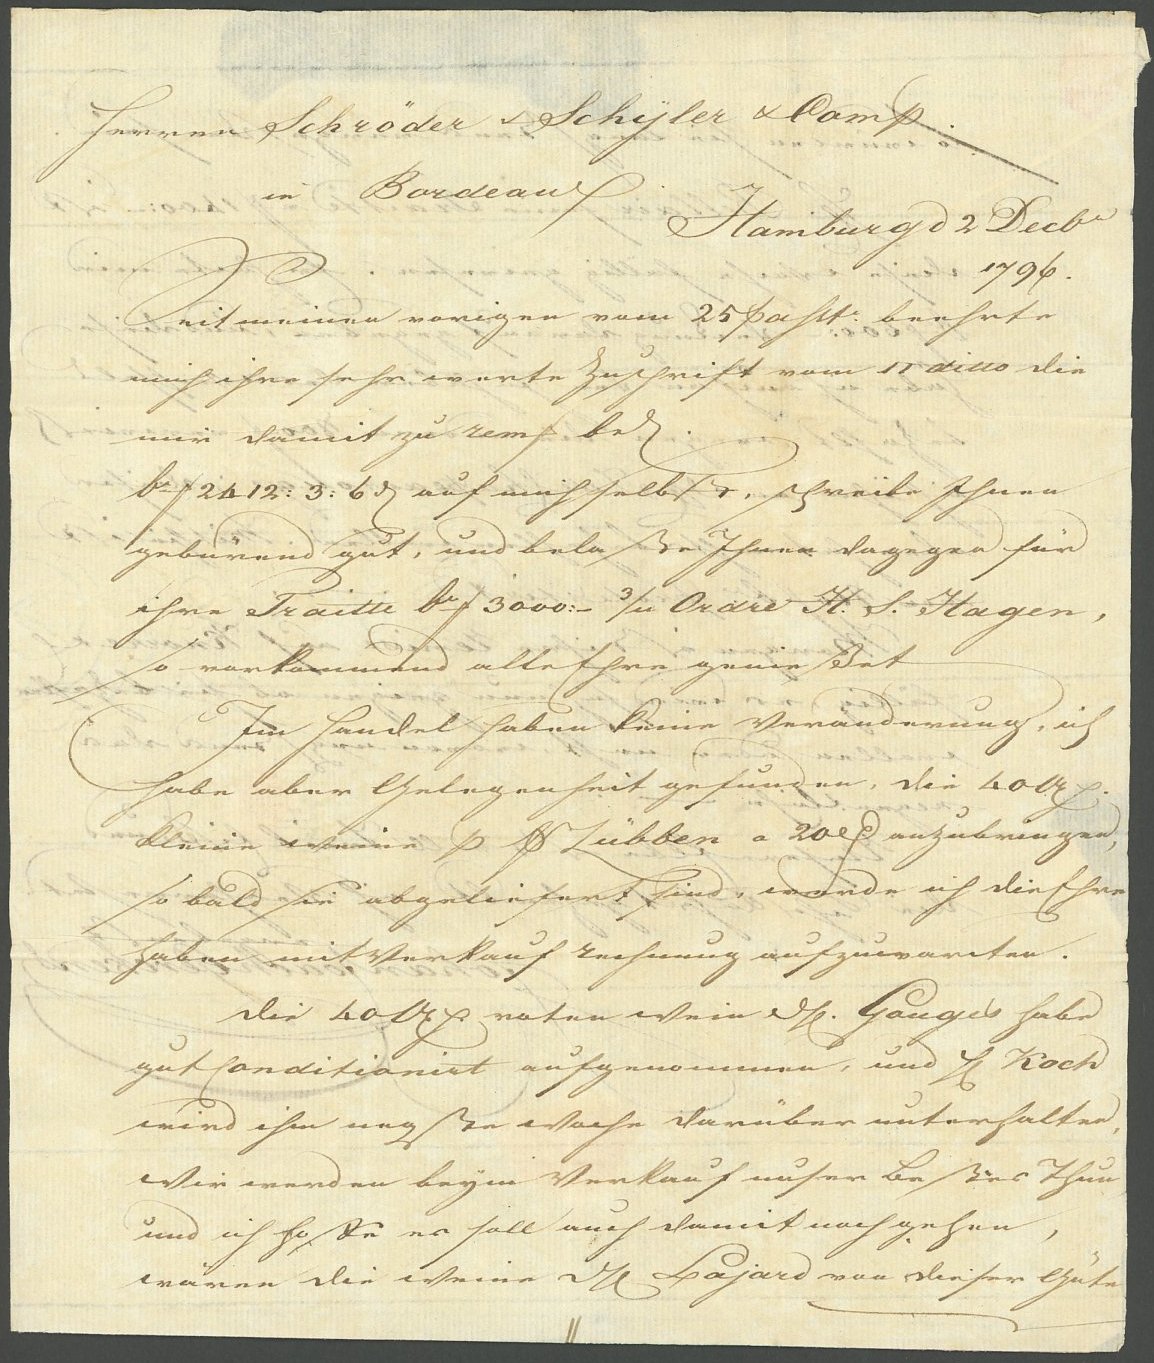 Herren Schröder & Schÿler & Comp.
in Bordeaux
Hamburg d 2 Decbr
1796.
Seit meinen vorigen vom 25 paßt: beehrte
mich ihre sehr werte Zuschrift vom 11 ditto die
mir damit zu
2412: 3: 6 auf mich selbst, schreibe Ihnen
gebürend gut, und belaste Ihnen dagegen für
ihre Traitte 3000:- Ordre H. S. Hagen,
so vorkommend alle Ehre genießet
Im Handel haben keine Veränderung, ich
habe aber Gelegenheit gefunden, die 40
kleine Weine p Lübben a 20 anzubringen,
so bald sie abgeliefert sind, werde ich die Ehre
haben mit Verkauf rechnung aufzuwarten.
Die 40 roten Wein Gouges habe
gut Conditionirt aufgenommen, und H Koch
wird ihn negste Woche darüber unterhalten,
Wir werden beÿm Verkauf unser Bestes Thun
und ich hoffe es soll auch damit noch gehen,
wären die Weine Lajard von dieser Güte